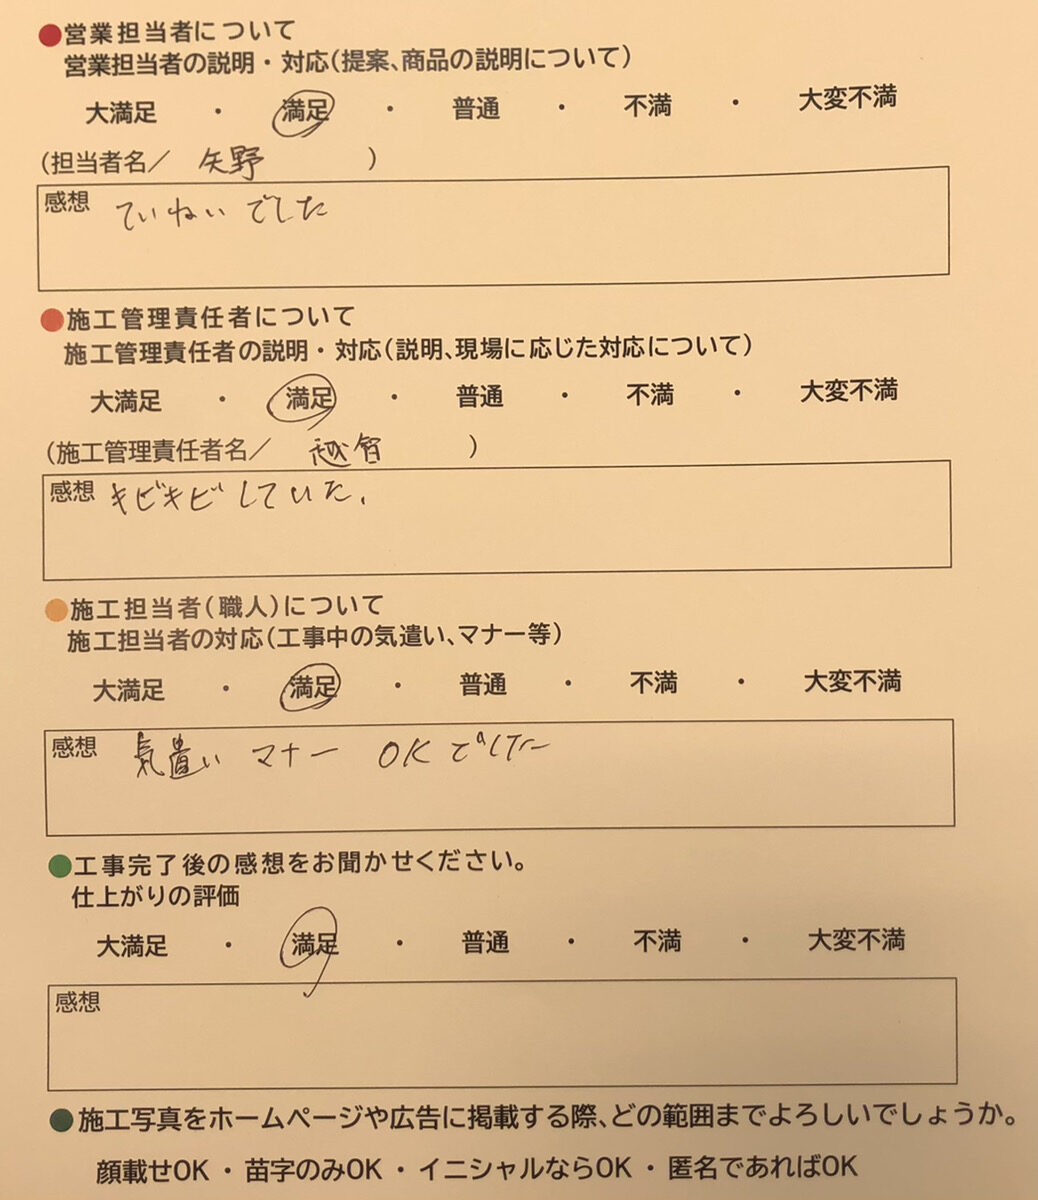 ●営業担当者について
営業担当者の説明・対応(提案、商品の説明について)
大満足 ・ 満足 ・ 普通 ・ 不満 ・ 大変不満
(担当者名／ 矢野 )
感想 ていねいでした
●施工管理責任者について
施工管理責任者の説明・対応(説明、現場に応じた対応について)
大満足 ・ 満足 ・ 普通 ・ 不満 ・ 大変不満
(施工管理責任者名／ 越智 )
感想 キビキビしていた.
●施工担当者(職人)について
施工担当者の対応(工事中の気遣い、マナー等)
大満足 ・ 満足 ・ 普通 ・ 不満 ・ 大変不満
感想 気遣い マナー OKでした
●工事完了後の感想をお聞かせください。
仕上がりの評価
大満足 ・ 満足 ・ 普通 ・ 不満 ・ 大変不満
感想
●施工写真をホームページや広告に掲載する際、どの範囲までよろしいでしょうか。
顔載せOK ・ 苗字のみOK ・ イニシャルならOK ・ 匿名であればOK